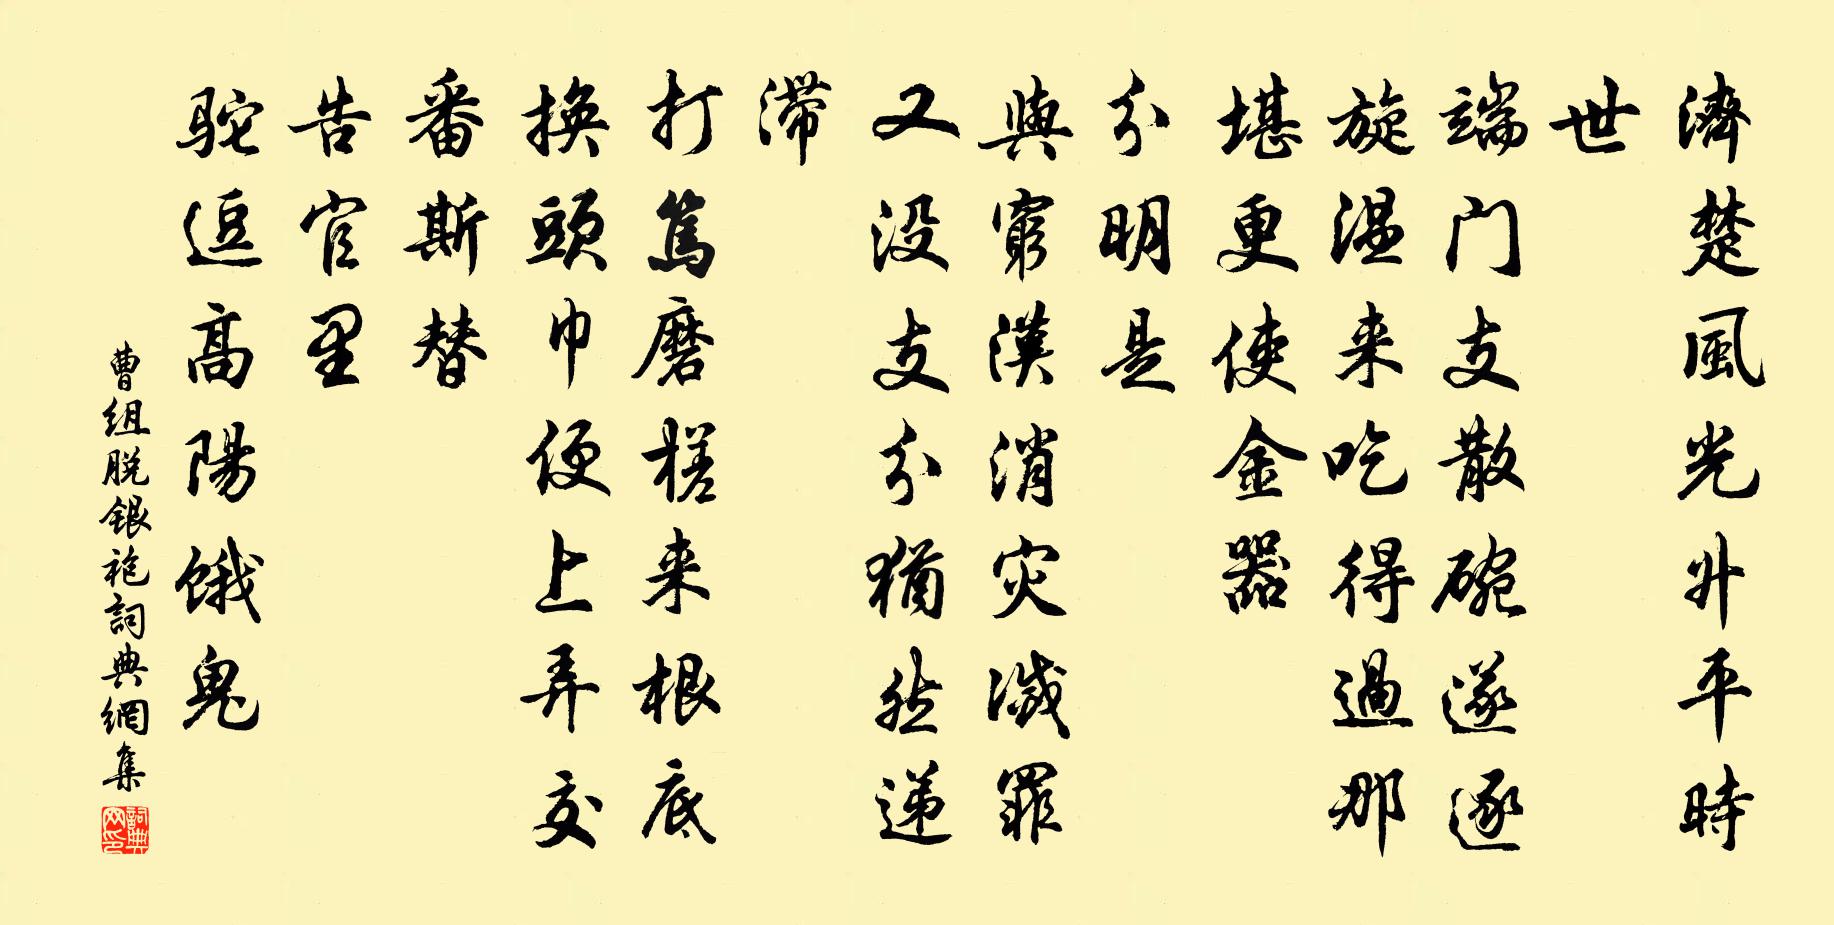 濟楚風光升平時
世
端门支散碗遂逐
旋温来吃得過那
堪更使金器
分明是
與窮漢消灾滅罪
又没支分猶然递
滞
打篤磨槎来根底
換頭巾便上弄交
番斯替
告官里
駝逗高陽餓鬼
曹组脱銀袍詞典網集
詞典
网印